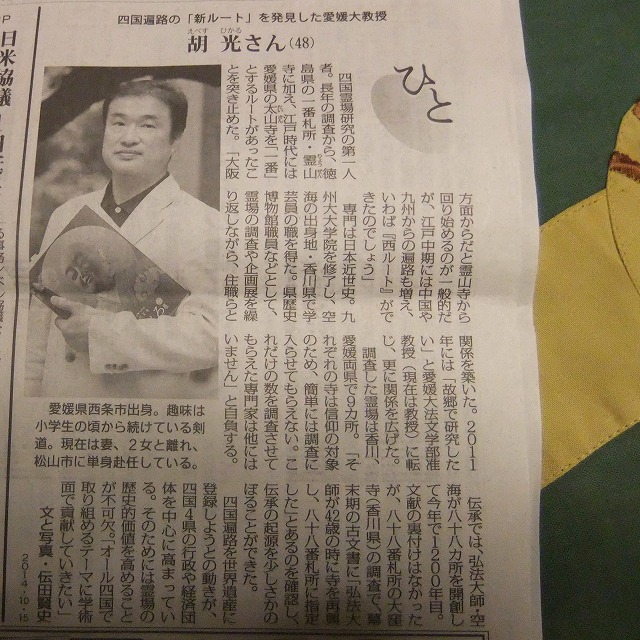 四国遍路の「新ルート」を発見した愛媛大教授
えべす ひかる
胡 光さん(48)
ひと
四国霊場研究の第一人
者。長年の調査から、徳
島県の一番札所・霊山
寺に加え、江戸時代には
愛媛県の太山寺を「一番」
とするルートがあったこ
とを突き止めた。「大阪
方面からだと霊山寺から
回り始めるのが一般的だ
が、江戸中期には中国や
九州からの遍路も増え、
いわば『西ルート』がで
きたのでしょう」
専門は日本近世史。九
州大大学院を修了し、空
海の出身地・香川県で学
芸員の職を得た。県歴史
博物館職員などとして、
霊場の調査や企画展を繰
り返しながら、住職らと
関係を築いた。2011
年には「故郷で研究した
い」と愛媛大法文学部准
教授(現在は教授)に転
じ、更に関係を広げた。
調査した霊場は香川、
愛媛両県で9カ所。「そ
れぞれの寺は信仰の対象
のため、簡単には調査に
入らせてもらえない。こ
れだけの数を調査させて
もらえた専門家は他には
いません」と自負する。
伝承では、弘法大師・空
海が八十八カ所を開創し
て今年で1200年目。
文献の裏付けはなかった
が、八十八番札所の大窪
寺(香川県)の調査で、幕
末期の古文書に「弘法大
師が42歳の時に寺を再興
し、八十八番札所に指定
したことあるのを確認し、
伝承の起源を少しさかの
ぼることができた。
四国遍路を世界遺産に
登録しようとの動きが、
四国4県の行政や経済団
体を中心に高まってい
る。そのためには霊場の
歴史的価値を高めること
が不可欠。「オール四国で
取り組めるテーマに学術
面で貢献していきたい」
文と写真・伝田賢史
愛媛県西条市出身。趣味は
小学生の頃から続けている剣
道。現在は妻、2女と離れ、
松山市に単身赴任している。
2014.10.15
日米協議